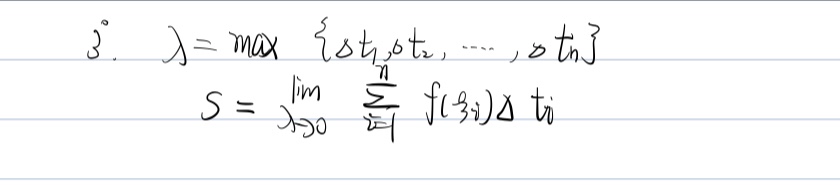 3°. λ = max {Δt₁, Δt₂, ……, Δtn}
S = lim λ→0 n Σ i=1 f(ξi)Δ ti